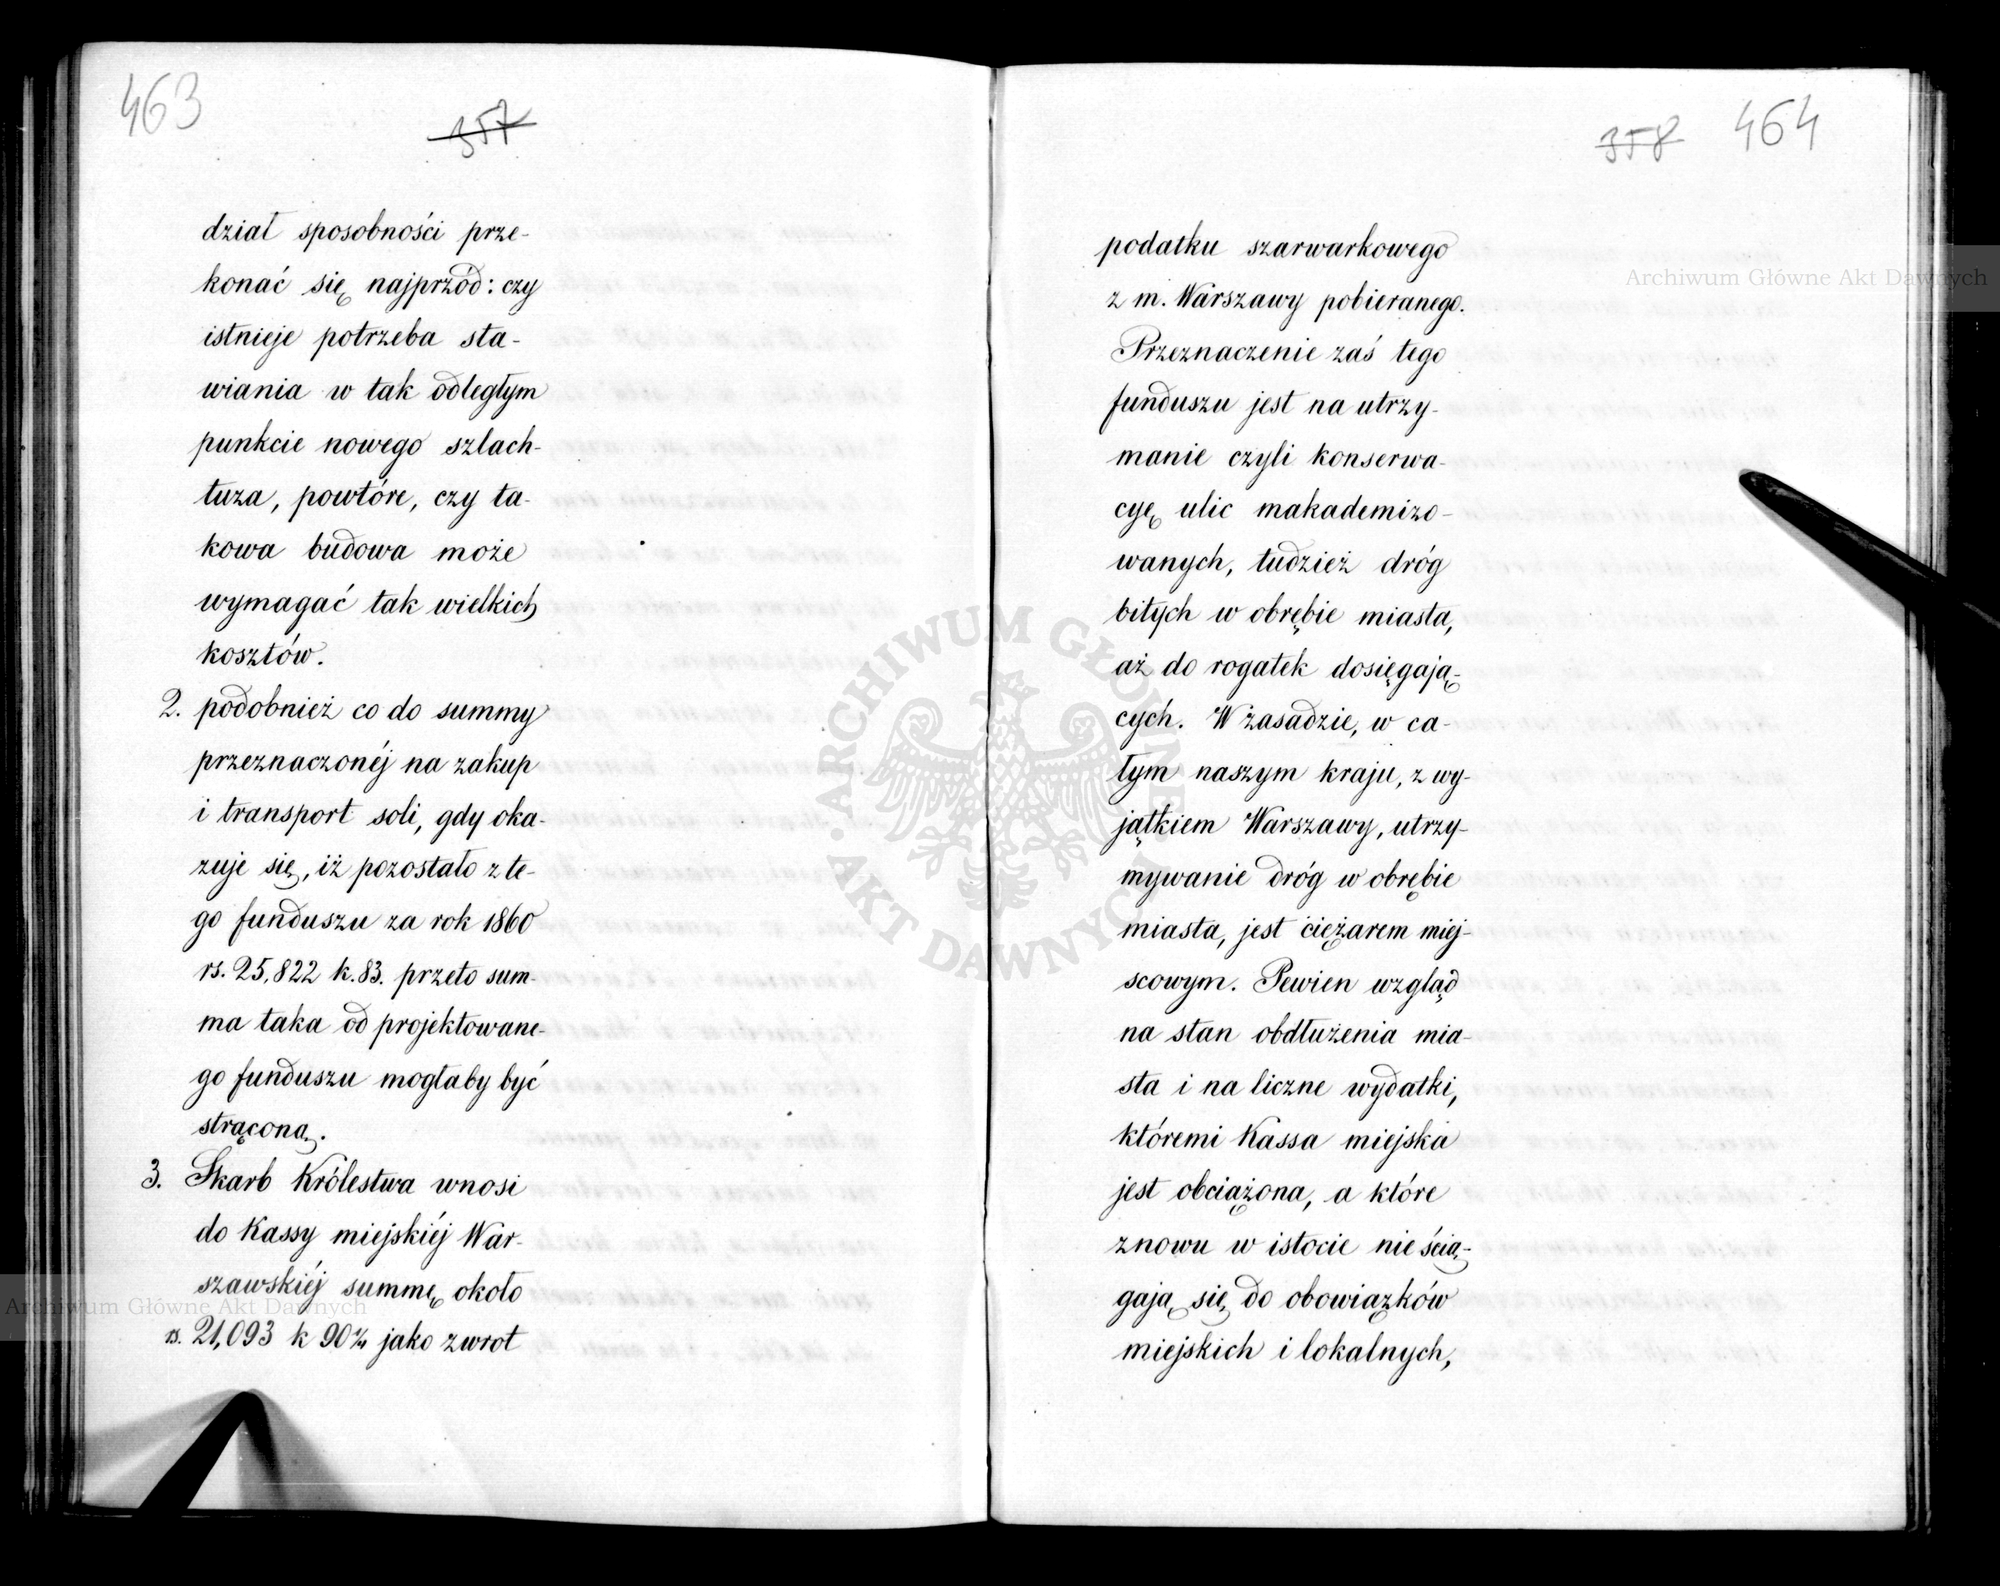 463
357
dział sposobności prze-
konać się najprzód: czy
istnieje potrzeba sta-
wiania w tak odległym
punkcie nowego szlach-
tuza, powtóre, czy ta-
kowa budowa może
wymagać tak wielkich
kosztów.
2. podobnież co do summy
przeznaczonéj na zakup
i transport soli, gdy oka-
zuje się, iż pozostało z te-
go funduszu za rok 1860
rs. 25,822 k. 83. przeto sum-
ma taka od projektowane-
go funduszu mogłaby być
strąconą.
3. Skarb Królestwa wnosi
do Kassy miejskiéj War-
szawskiéj summę około
rs. 21,093 k 90¾ jako zwrot
358 464
podatku szarwarkowego
z m. Warszawy pobieranego.
Przeznaczenie zaś tego
funduszu jest na utrzy-
manie czyli konserwa-
cyę ulic makademizo-
wanych, tudzież dróg
bitych w obrębie miasta,
aż do rogatek dosięgają-
cych. W zasadzie, w ca-
łym naszym kraju, z wy-
jątkiem Warszawy, utrzy-
mywanie dróg w obrębie
miasta, jest ciężarem miej-
scowym. Pewien wzgląd
na stan obdłużenia mia-
sta i na liczne wydatki,
któremi Kassa miejska
jest obciążona, a które
znowu w istocie nie ścią-
gają się do obowiązków
miejskich i lokalnych,
Archiwum Główne Akt Dawnych
Archiwum Główne Akt Dawnych
ARCHIWUM GŁÓWNE AKT DAWNYCH